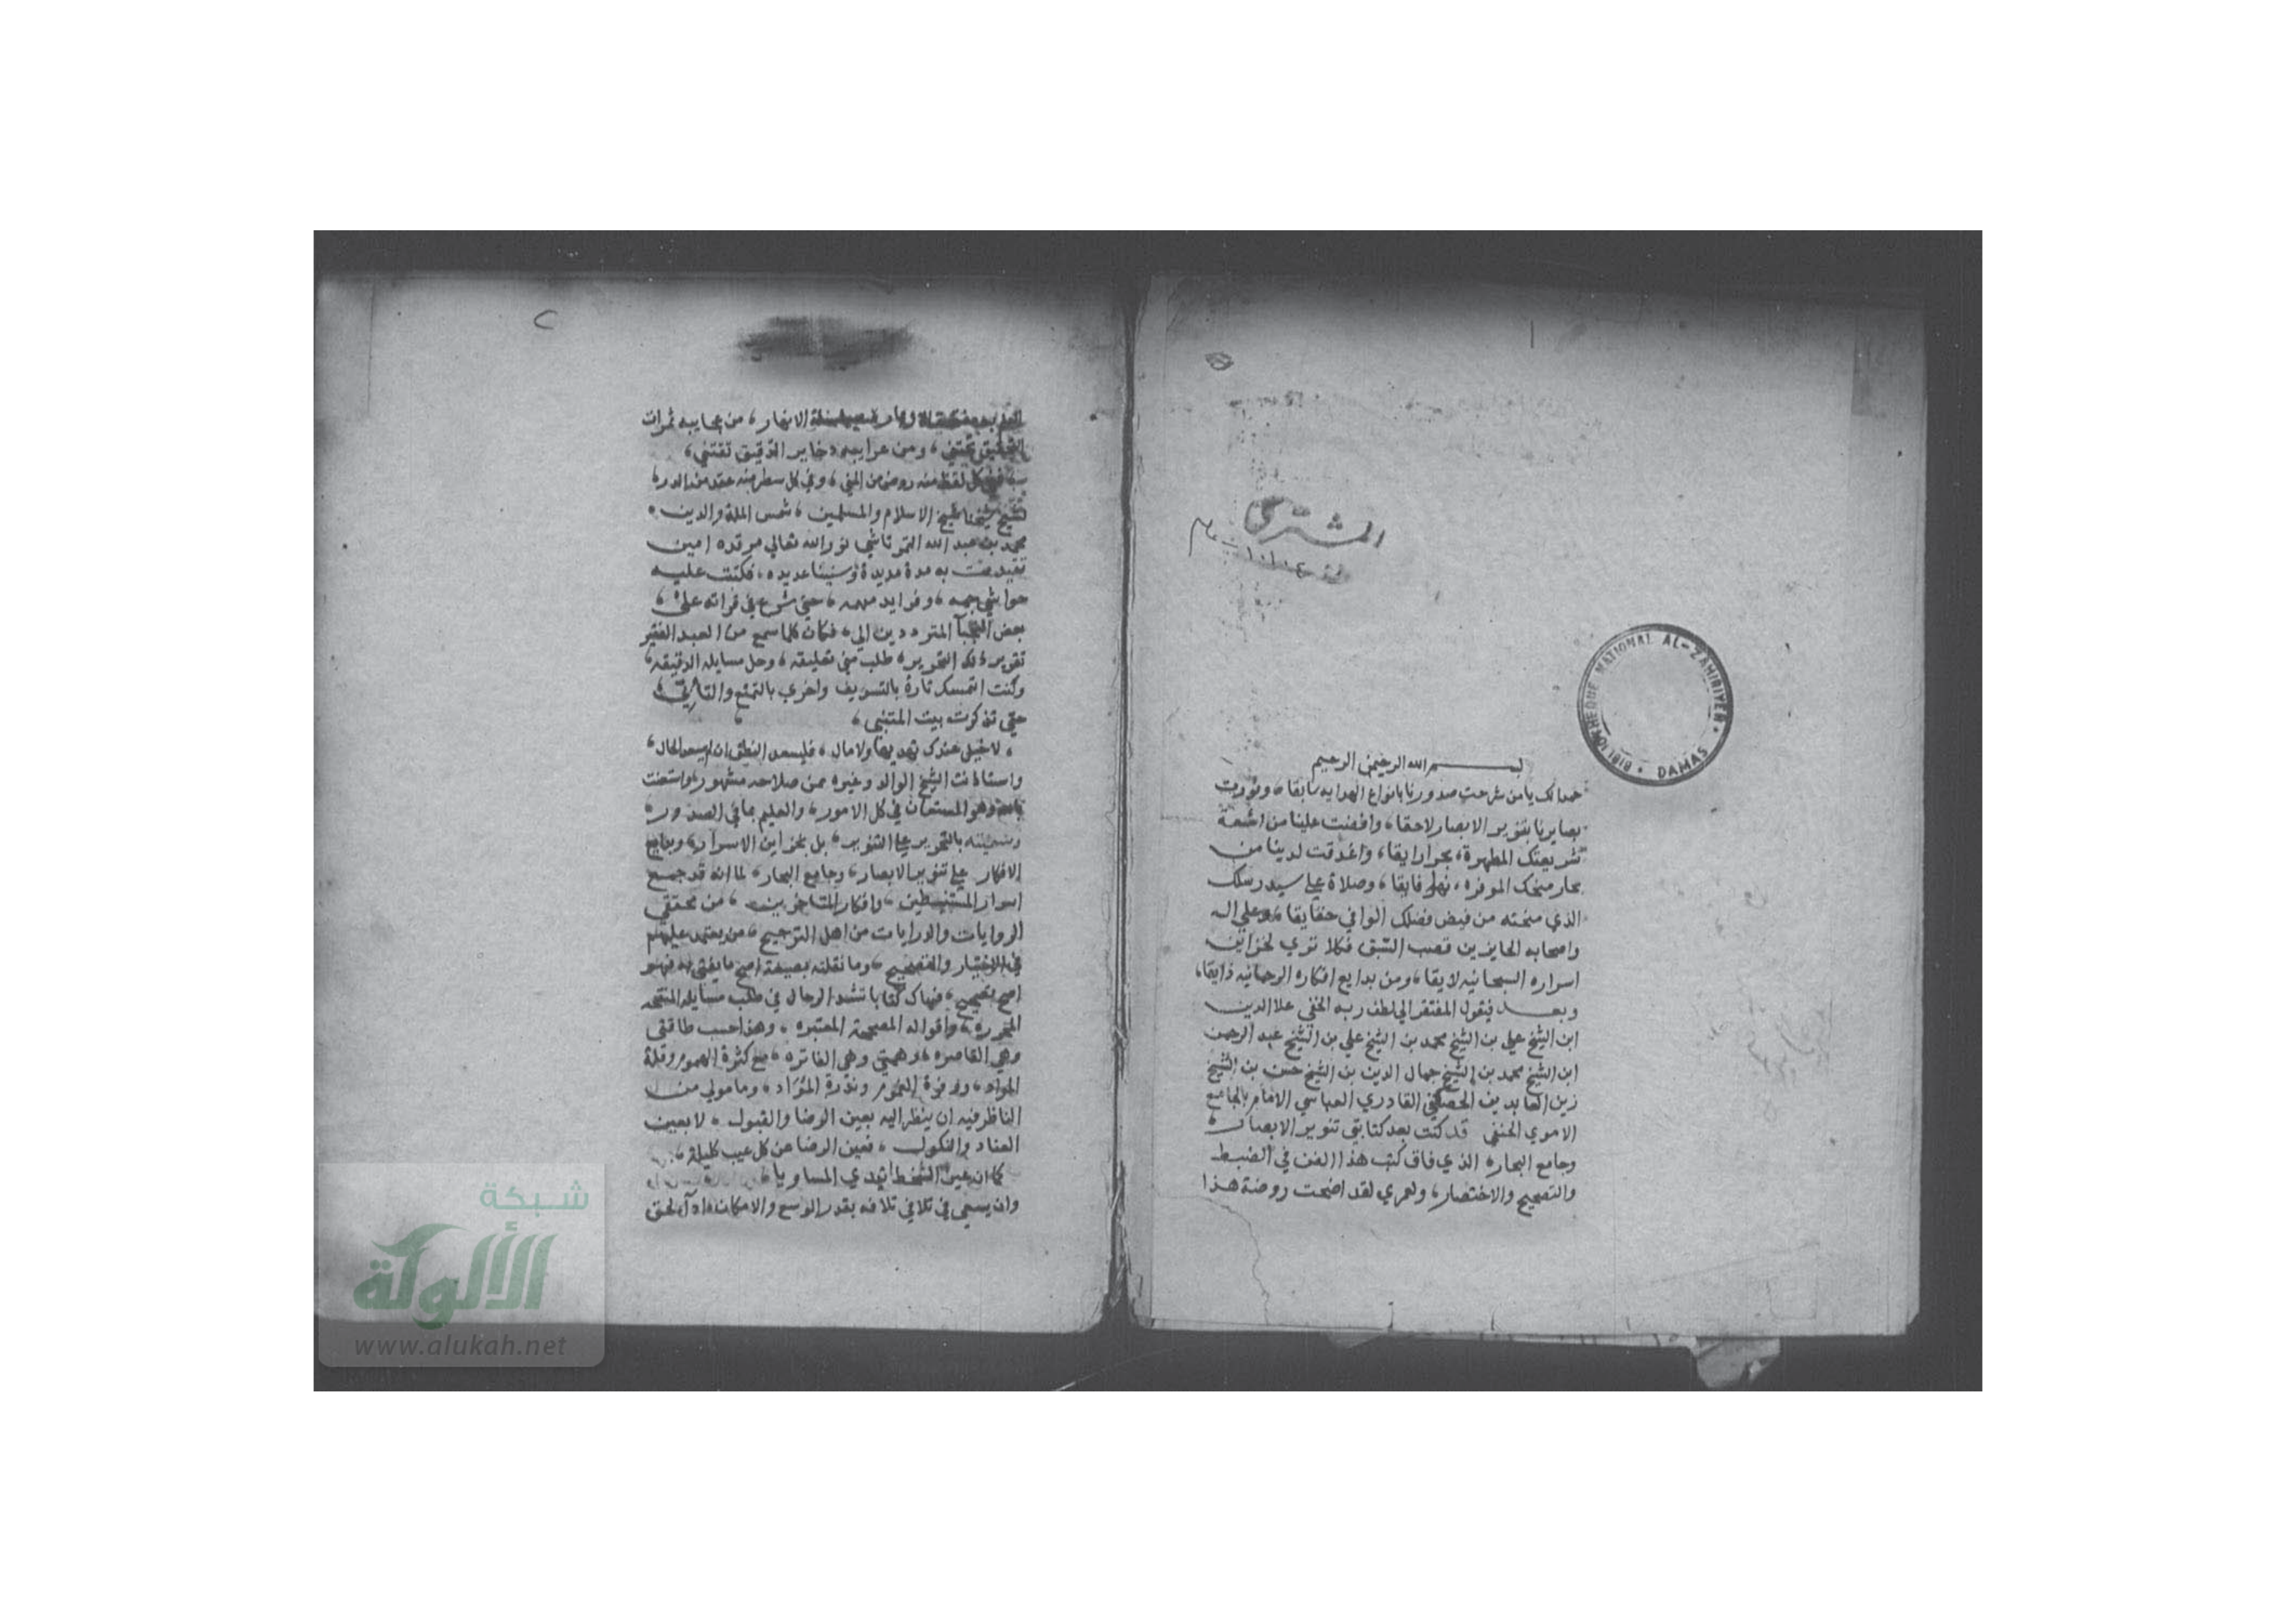 المشترى
١
BIBLIOTHEQUE NATIONAL AL-ZAHIRIYEH • DAMAS •
بسم الله الرحيمن الرحيم
حمدا لك يا من شرحت صدورنا بانواع الهدايه سابقا، ونورت
بصايرنا بتنوير الابصار لاحقا، وافضت علينا من اشعة
شريعتك المطهرة، بحرا رايقا، واغدقت لدينا من
بحار منحك الموفره، نهرا فايقا، وصلاة على سيد رسلك
الذي منحته من فيض فضلك الوافي حقايقا، وعلى اله
واصحابه الحايزين قصب السبق فكلا تري لخزاين
اسراره السبحانيه لايقا، ومن بدايع افكاره الرحمانيه ذايقا،
وبعد فيقول المفتقر الي لطف ربه الخفي علا الدين
ابن الشيخ علي بن الشيخ محمد بن الشيخ علي بن الشيخ عبد الرحمن
ابن الشيخ محمد بن الشيخ جمال الدين بن الشيخ حسن بن الشيخ
زين العابدين الحصكفي القادري العباسي الامام بالجامع
الاموي الحنفي قد كنت بعد كتابتي تنوير الابصار،
وجامع البحار، الذي فاق كتب هذا الفن في الضبط
والتصحيح والاختصار، ولعمري لقد اضحت روضة هذا
٢
العلم به الانهار، من عجايبه ثمرات
التحقيق تجتني، ومن غرايبه ذخاير التدقيق تقتني،
ففي كل لفظ منه روض من المني، وفي كل سطر منه عقد من الدرر،
لشيخ شيخنا شيخ الاسلام والمسلمين، شمس الملة والدين،
محمد بن عبد الله التمرتاشي نور الله تعالي مرقده امين
تقيدت به مدة مديدة وسنينا عديده، فكتبت عليه
حواشي جمه، وفرايد مهمه، حتي شرع في قراته علي،
بعض النجبا المترددين الي، فكان كلما سمع من العبد الفقير
تقرير ذلك التحرير، طلب مني تعليقه، وحل مسايله الدقيقه،
وكنت اتمسك تارة بالتسويف واخري بالتمنع
حتي تذكرت بيت المتنبي،
، لا خيل عندك تهديها ولا مال، فليسعد النطق ان لم يسعد الحال،
واستاذنت الشيخ الوالد وغيره ممن صلاحه مشهور، واستعنت
بالله وهو المستعان في كل الامور، والعليم بما في الصدور،
وسميته بالتحرير على التنوير، بل بخزاين الاسرار، وبدايع
الافكار على تنوير الابصار، وجامع البحار، لما انه قد جمع
اسرار المستنبطين، وافكار المتاخرين، من محققي
الروايات والدرايات من اهل الترجيح، من يعتمد عليهم
في الاختيار والتصحيح، وما نقلته بصيغة اصح ما يفتي به فهو
اصح تصحيح، فهاك كتابا تشد الرحال في طلب مسايله المنقحه
المحرره، واقواله المصححة المعتبره، وهذا حسب طاقتي
وهي القاصره، وهمتي وهي الفاتره، مع كثرة الهموم وقلة
المواد، ووفرة الغموم وندرة المواد، ومامولي من
الناظر فيه ان ينظر اليه بعين الرضا والقبول، لا بعين
العناد والنكول، فعين الرضا عن كل عيب كليلة،
كما ان عين السخط تبدي المساويا،
وان يسعي في تلافي تلافه بقدر الوسع والامكان، اد آ لحق
شبكة
الألوكة
www.alukah.net